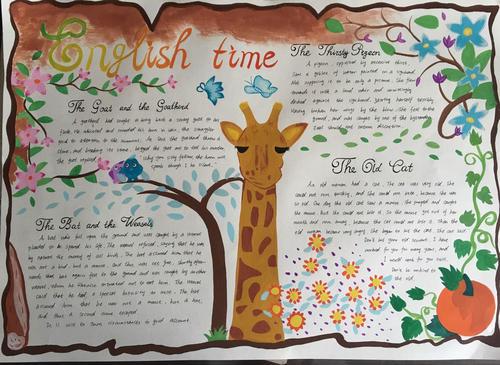 English time
The Goat and the Goatherd
A goatherd had sought to bring back a stray goat to his
flock. He whistled and sounded his horn in vain; the straggler
paid no attention to the summons. At last the goatherd threw a
stone, and breaking its horn, begged the goat not to tell his master.
the goat replied, "Why, you silly fellow, the horn will
speak though I be silent."
The Thirsty Pigeon
A pigeon, oppressed by excessive thirst,
saw a goblet of water painted on a signboard.
Not supposing it to be only a picture, she flew
towards it with a loud whir and unwittingly
dashed against the signboard, jarring herself terribly.
Having broken her wings by the blow, she fell to the
ground, and was caught by one of the bystanders.
Zeal should not outrun discretion.
The Old Cat
An old woman had a cat. The cat was very old. She
could not run quickly, and she could not bite, because she was
so old. One day the old cat saw a mouse; she jumped and caught
the mouse. But she could not bite it. So the mouse got out of her
mouth and ran away, because the cat could not bite it. Then the
old woman became very angry. She began to hit the cat. She said
Don't hit your old servant. I have
worked for you for many years, and
I would work for you still.
Don't be unkind to
the old.
The Bat and the Weasels
A bat who fell upon the ground and was caught by a weasel
pleaded to be spared his life. The weasel refused, saying that he was
by nature the enemy of all birds. The bat assured him that he
was not a bird, but a mouse, and thus was set free. Shortly after-
wards the bat again fell to the ground and was caught by another
weasel, whom he likewise entreated not to eat him. The weasel
said that he had a special hostility to mice. The bat
assured him that he was not a mouse, but a bat,
and thus a second time escaped.
It is wise to turn circumstances to good account.